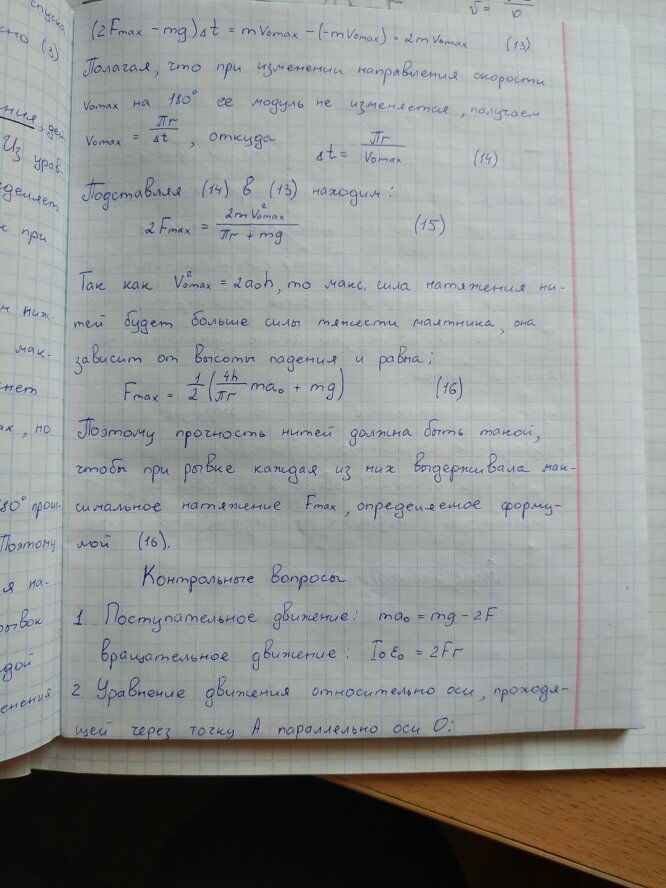 (2Fmax - mg)Δt = mVomax - (-mVomax) = 2mVomax (13)
Полагая, что при изменении направления скорости
Vomax на 180° ее модуль не изменяется, получаем
Vomax = Пr/Δt, откуда Δt = Пr/Vomax (14)
Подставляя (14) в (13) находим:
2Fmax = 2mV²omax/Пr + mg (15)
Так как V²omax = 2a₀h, то макс. сила натяжения ни-
тей будет больше силы тяжести маятника, она
зависит от высоты падения и равна:
Fmax = 1/2 (4h/Пr ma₀ + mg) (16)
Поэтому прочность нитей должна быть такой,
чтобы при рывке каждая из них выдерживала мак-
симальное натяжение Fmax, определяемое форму-
лой (16).
Контрольные вопросы
1. Поступательное движение: ma₀ = mg - 2F
вращательное движение: I₀ε₀ = 2Fr
2. Уравнение движения относительно оси, проходя-
щей через точку А параллельно оси О: